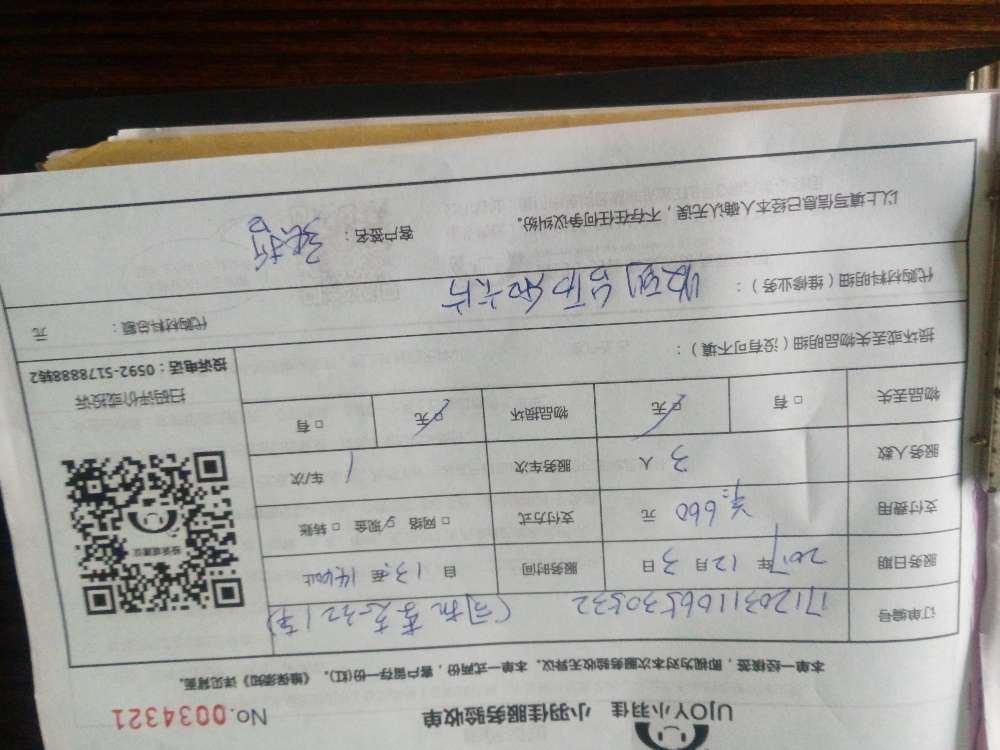 UJOY小羽佳 小羽佳服务验收单 No.0034321
本单一经接签，即视为对本次服务验收无异议。本单一式两份，客户留存一份(红)。《维保须知》详见背面。
订单编号 1712031106530532
服务日期 2017年12月3日 服务时间 自13至14:00止
支付费用 ¥:660元 支付方式 □网络 □现金 □转账
服务人数 3人 服务车次 1车/次
物品丢失 □有 □无 物品损坏 □无 □有
扫码评价或投诉
投诉电话：0592-5178888转2
损坏或丢失物品明细（没有可不填）：
代购材料明细（维修业务）： 代购材料总额： 元
以上填写信息已经本人确认无误，不存在任何争议纠纷。 客户签名：